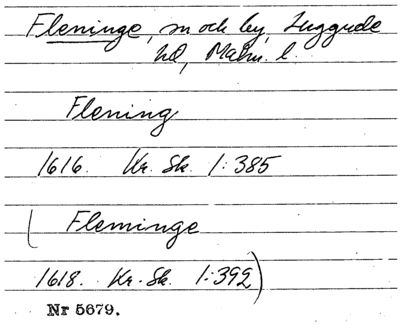 Fleninge, sn och by, Luggude
hd, Malm. l.
Flening
1616. Kr. Sk. 1:385
( Fleminge
1618. Kr. Sk. 1:392)
Nr 5679.